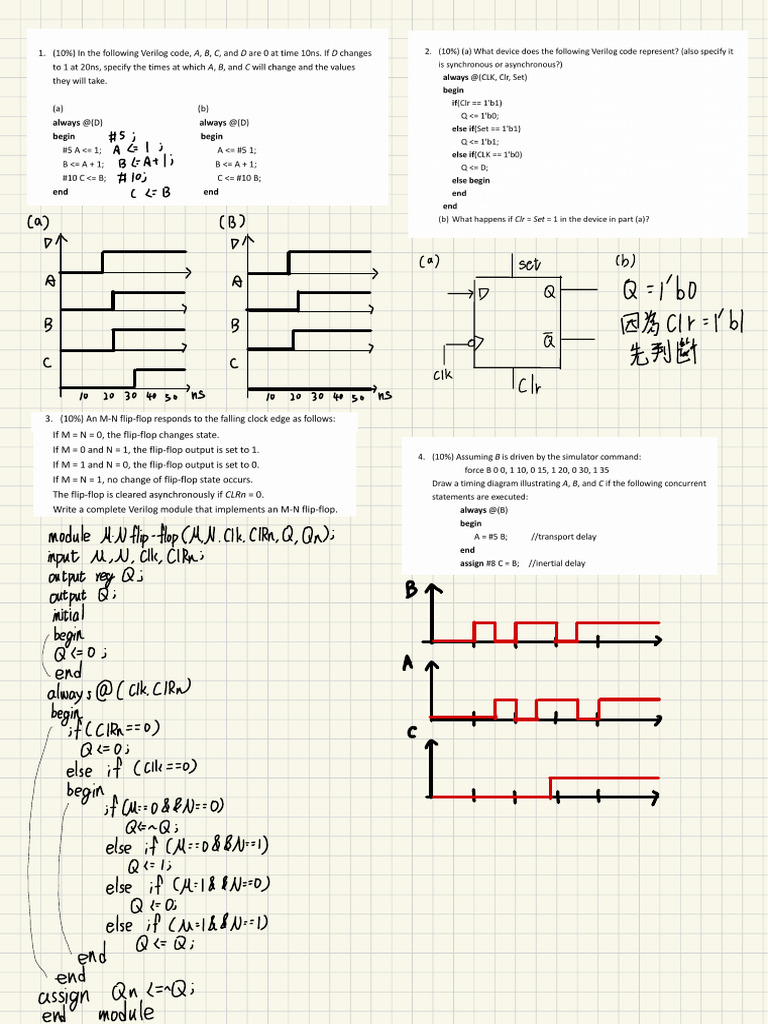 1. (10%) In the following Verilog code, A, B, C, and D are 0 at time 10ns. If D changes
to 1 at 20ns, specify the times at which A, B, and C will change and the values
they will take.
(a)
always @(D)
begin #5 ;
#5 A <= 1; A <= 1 ;
B <= A + 1; B <= A+1;
#10 C <= B; #10;
end C <= B
(b)
always @(D)
begin
A <= #5 1;
B <= A + 1;
C <= #10 B;
end
(a)
D
A
B
C
10 20 30 40 50 ns
(B)
D
A
B
C
10 20 30 40 50 ns
2. (10%) (a) What device does the following Verilog code represent? (also specify it
is synchronous or asynchronous?)
always @(CLK, Clr, Set)
begin
if(Clr == 1'b1)
Q <= 1'b0;
else if(Set == 1'b1)
Q <= 1'b1;
else if(CLK == 1'b0)
Q <= D;
else begin
end
end
(b) What happens if Clr = Set = 1 in the device in part (a)?
(a)
set
D Q
Q̅
Clk
Clr
(b)
Q = 1'b0
因為 Clr = 1'b1
先判斷
3. (10%) An M-N flip-flop responds to the falling clock edge as follows:
If M = N = 0, the flip-flop changes state.
If M = 0 and N = 1, the flip-flop output is set to 1.
If M = 1 and N = 0, the flip-flop output is set to 0.
If M = N = 1, no change of flip-flop state occurs.
The flip-flop is cleared asynchronously if CLRn = 0.
Write a complete Verilog module that implements an M-N flip-flop.
module M-N flip-flop (M,N,Clk,ClRn,Q,Qn);
input M,N,Clk,ClRn;
output reg Q;
output Q;
initial
begin
Q <= 0 ;
end
always @ (Clk,ClRn)
begin
if (ClRn == 0)
Q <= 0;
else if (Clk == 0)
begin
if (M==0 && N==0)
Q<=~Q;
else if (M==0 && N==1)
Q <= 1;
else if (M=1 && N==0)
Q <= 0;
else if (M=1 && N==1)
Q <= Q;
end
end
assign Qn <=~Q;
end module
4. (10%) Assuming B is driven by the simulator command:
force B 0 0, 1 10, 0 15, 1 20, 0 30, 1 35
Draw a timing diagram illustrating A, B, and C if the following concurrent
statements are executed:
always @(B)
begin
A = #5 B; //transport delay
end
assign #8 C = B; //inertial delay
B
A
C